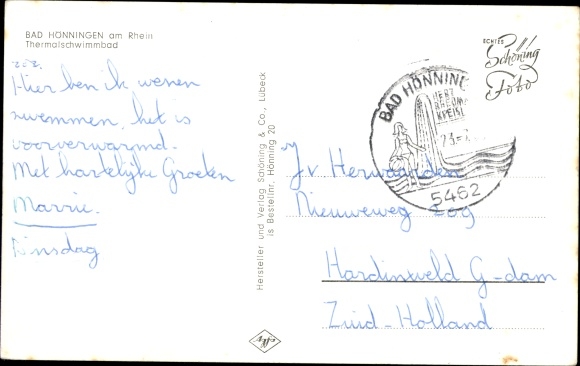 BAD HÖNNINGEN am Rhein
Thermalschwimmbad
Hier ben ik wenen
zwemmen, het is
voorverwarmd.
Met hartelijke Groeten
Marrie.
Dinsdag
Hersteller und Verlag Schöning & Co., Lübeck
is Bestellnr. Hönning 20
ECHTES
Schöning
Foto
BAD HÖNNING
HERZ
RHEUMA
KREISL
5462
Jv Herwaarden
Nieuweweg 209
Hardinxveld G-dam
Zuid-Holland